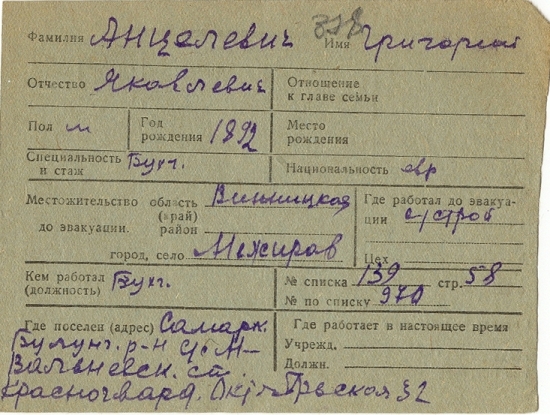 Фамилия Анцелевич Имя Григорий
318
Отчество Яковлевич
Отношение к главе семьи
Пол м
Год рождения 1892
Место рождения
Специальность и стаж Бухг.
Национальность евр
Местожительство область Винницкая
(край)
до эвакуации. район
город, село Межиров
Где работал до эвакуации с/строй
Цех
Кем работал (должность) Бухг.
№ списка 139 стр. 58
№ по списку 970
Где поселен (адрес) Самарк.
Булунг. р-н
ст.
Красногвард. Октябрьская 32
Где работает в настоящее время
Учрежд.
Должн.